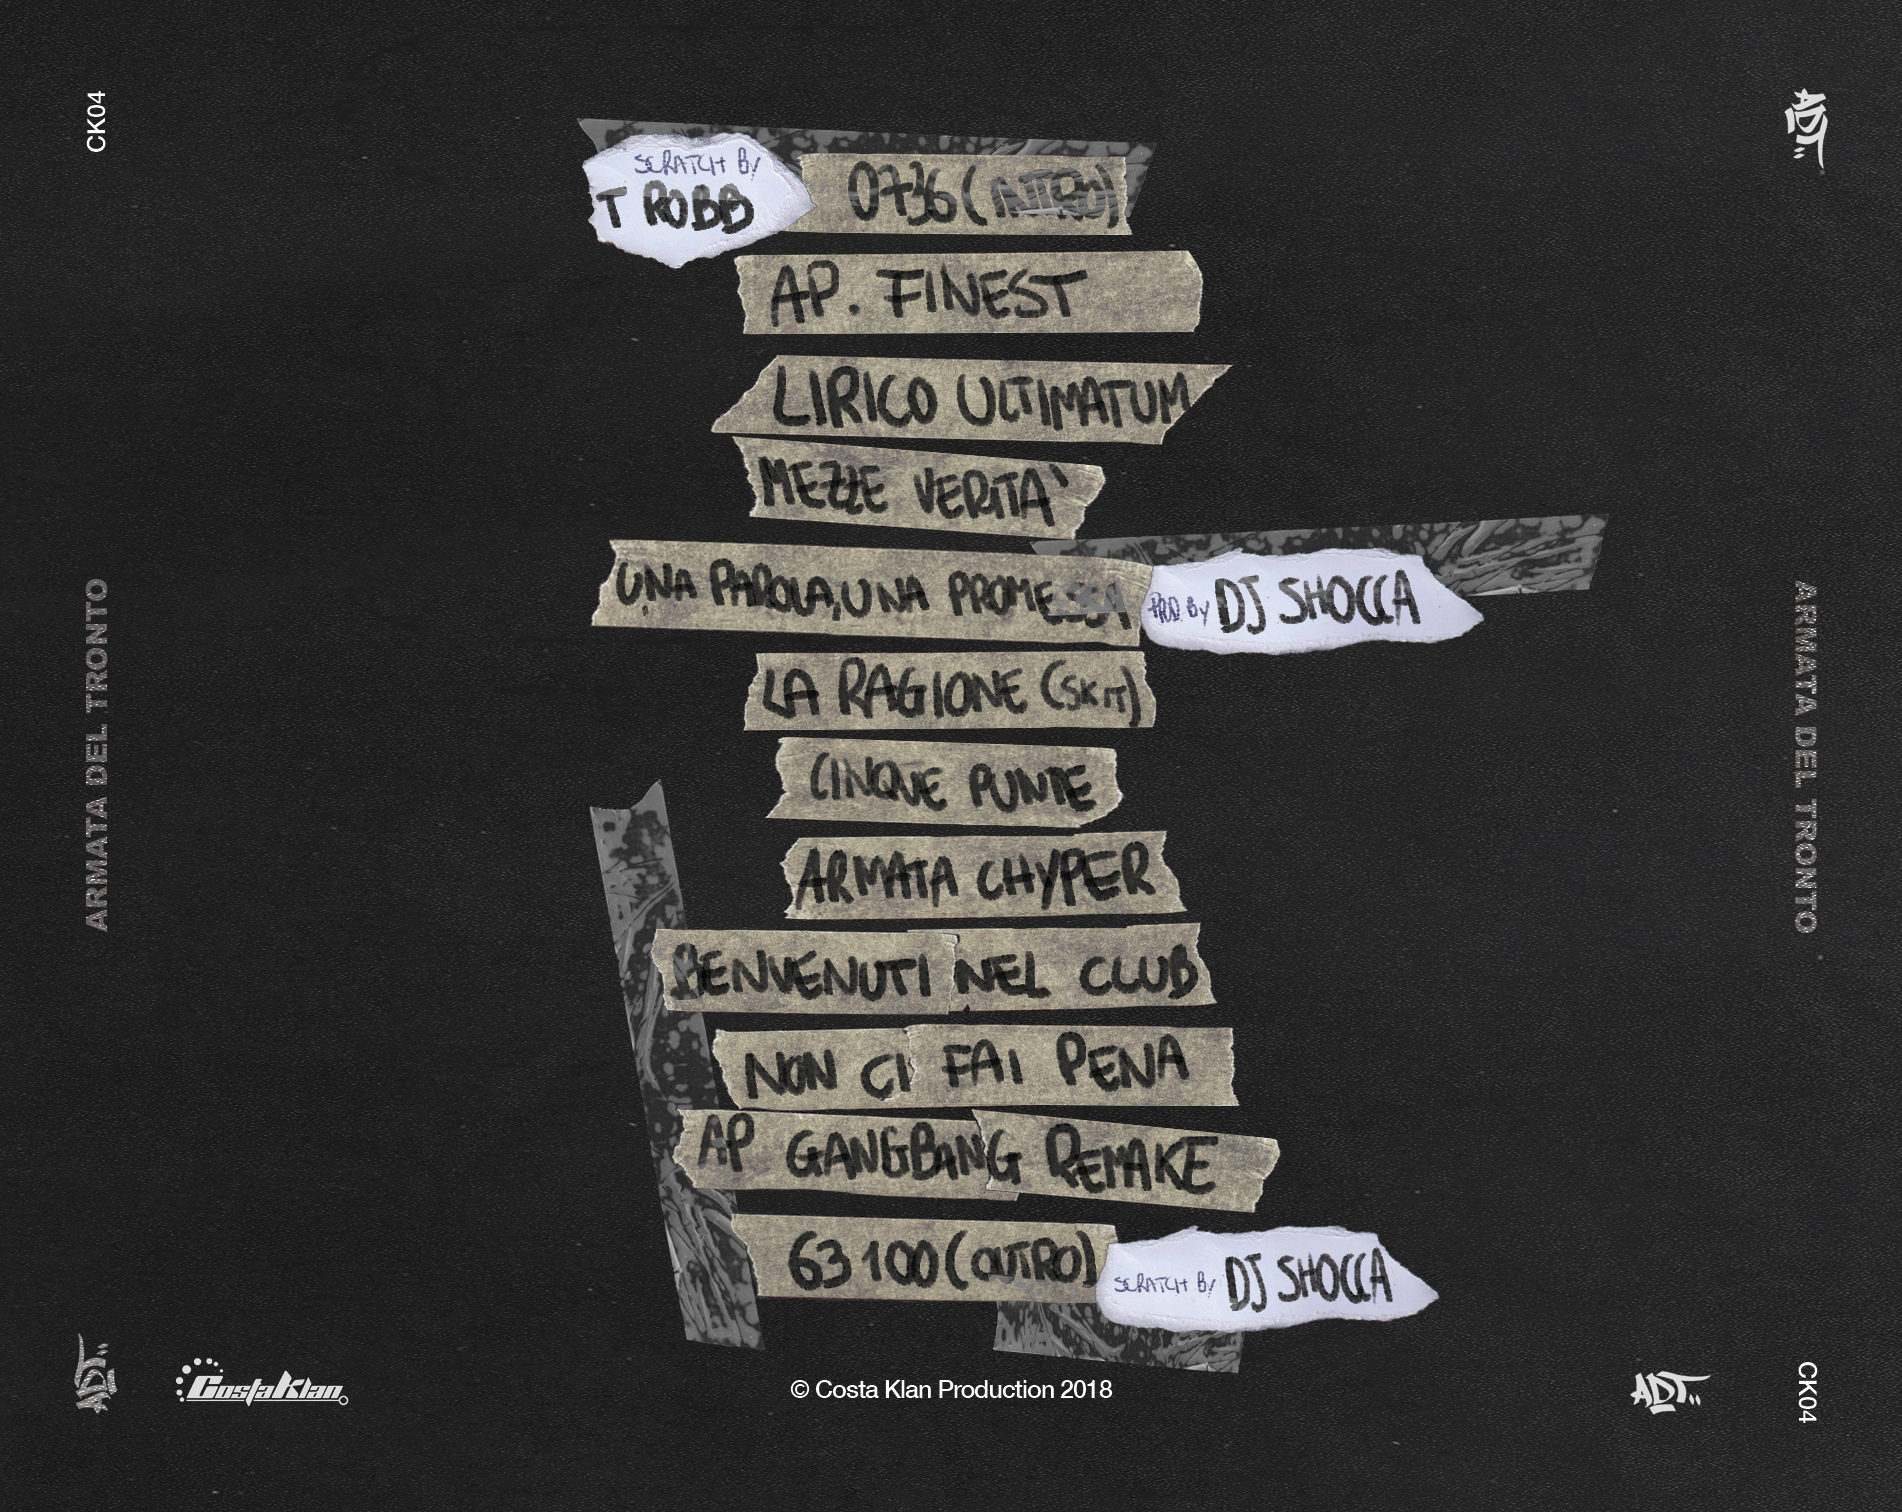 CK04
ADT
SCRATCH BY
T ROBB
0736 (INTRO)
AP. FINEST
LIRICO ULTIMATUM
MEZZE VERITA'
UNA PAROLA, UNA PROMESSA
PROD. BY DJ SHOCCA
LA RAGIONE (SKIT)
CINQUE PUNTE
ARMATA CHYPER
BENVENUTI NEL CLUB
NON CI FAI PENA
AP GANGBANG REMAKE
63100 (OUTRO)
SCRATCH BY DJ SHOCCA
ARMATA DEL TRONTO
ARMATA DEL TRONTO
ADT
CostaKlan
© Costa Klan Production 2018
ADT
CK04